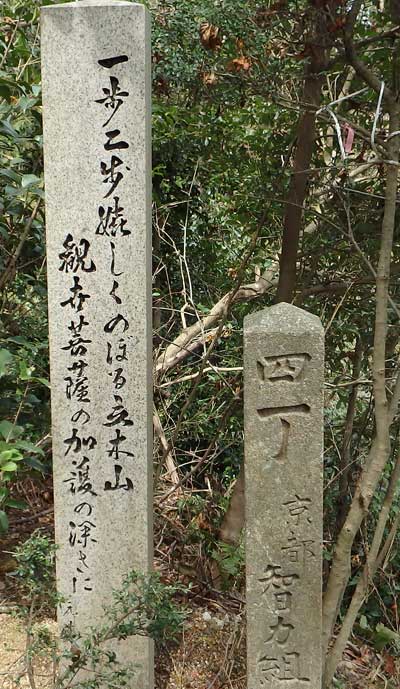 一歩二歩嬉しくのぼる立木山
観世菩薩の加護の深さに
四丁
京都 智力組